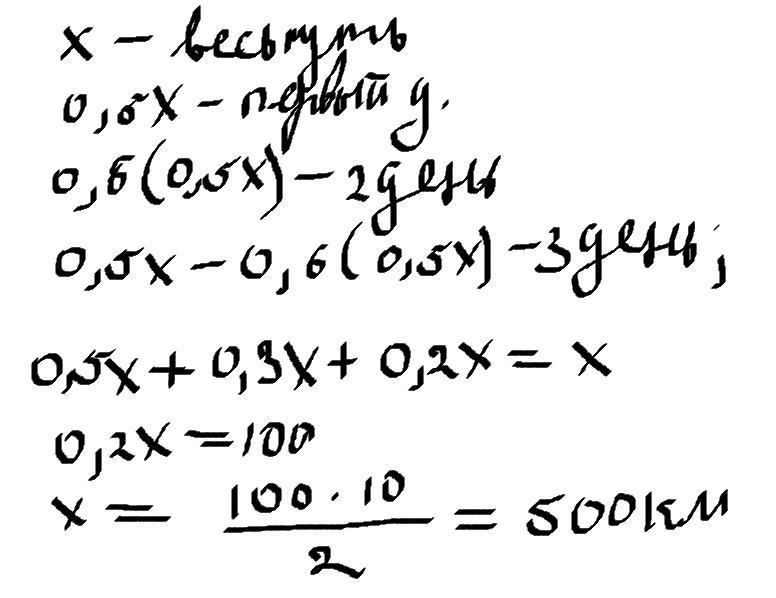 x - весь путь
0,5x - первый д.
0,6(0,5x) - 2 день
0,5x - 0,6(0,5x) - 3 день;
0,5x + 0,3x + 0,2x = x
0,2x = 100
x = \frac{100 \cdot 10}{2} = 500 км